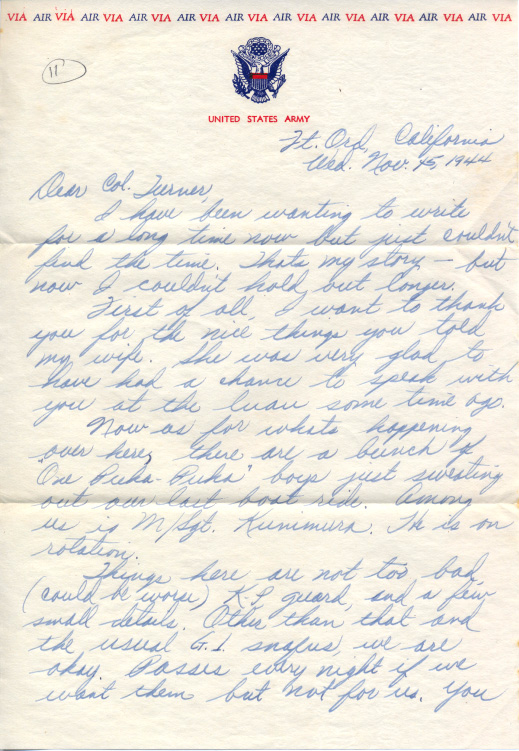 VIA AIR VIA AIR VIA AIR VIA AIR VIA AIR VIA AIR VIA AIR VIA AIR VIA AIR VIA AIR VIA AIR VIA
11
UNITED STATES ARMY
Ft. Ord, California
Wed. Nov. 15, 1944
Dear Col. Turner,
I have been wanting to write
for a long time now but just couldn't
find the time. Thats my story – but
now I couldn't hold out longer.
First of all, I want to thank
you for the nice things you told
my wife. She was very glad to
have had a chance to speak with
you at the luau some time ago.
Now as for whats happening
over here, there are a bunch of
"One Puka-Puka" boys just sweating
out our last boat ride. Among
us is M/Sgt. Kunimura. He is on
rotation.
Things here are not too bad,
(could be worse) K.P., guard, and a few
small details. Other than that and
the usual G.I. snafus, we are
okay. Passes every night if we
want them but not for us. You